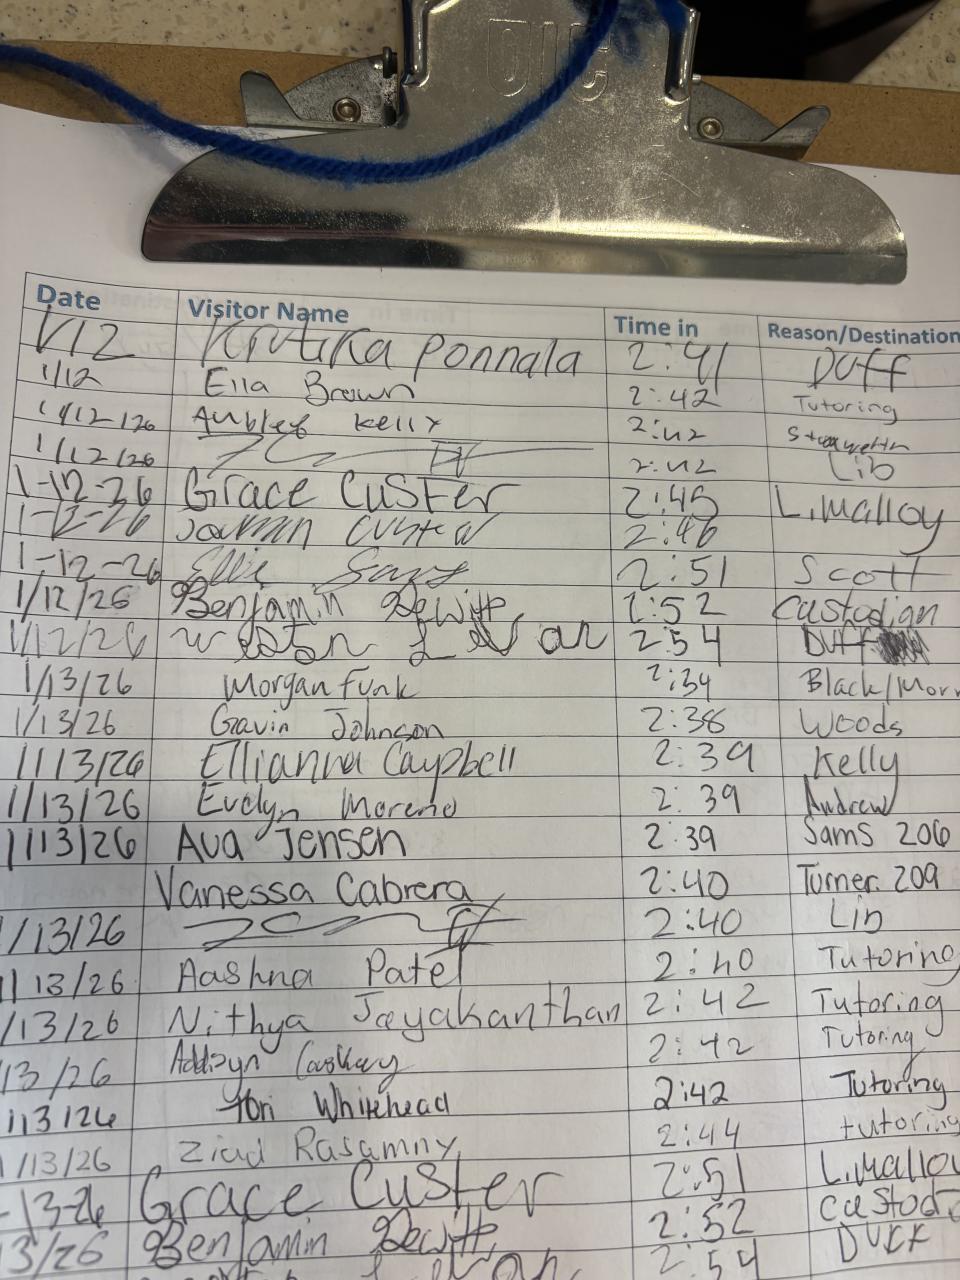 OIC
Date Visitor Name Time in Reason/Destination
1/12 Krutika Ponnala 2:41 Duff
1/12 Ella Brown 2:42 Tutoring
1/12/26 Aubley Kelly 2:42
1/12/26 2:42 Lib
1-12-26 Grace Custer 2:45 L.Malloy
1-12-26 2:46
1-12-26 Ellie 2:51 Scott
1/12/26 Benjamin Dewitt 2:52 Custodian
1/12/26 Weston 2:54 Duff
1/13/26 Morgan Funk 2:34 Black/Morr
1/13/26 Gavin Johnson 2:38 Woods
1/13/26 Ellianna Caypbell 2:39 Kelly
1/13/26 Evelyn Moreno 2:39 Andrew
1/13/26 Ava Jensen 2:39 Sams 206
Vanessa Cabrera 2:40 Turner 209
1/13/26 2:40 Lib
1/13/26 Aashna Patel 2:40 Tutoring
/13/26 Nithya Jayakanthan 2:42 Tutoring
13/26 Addisyn Caskey 2:42 Tutoring
1/13/26 Tori Whitehead 2:42 Tutoring
1/13/26 Ziad Rasamny 2:44 tutoring
-13-26 Grace Custer 2:51 L.Malloy
3/26 Benjamin Dewitt 2:52 Custod
2:54 Duff